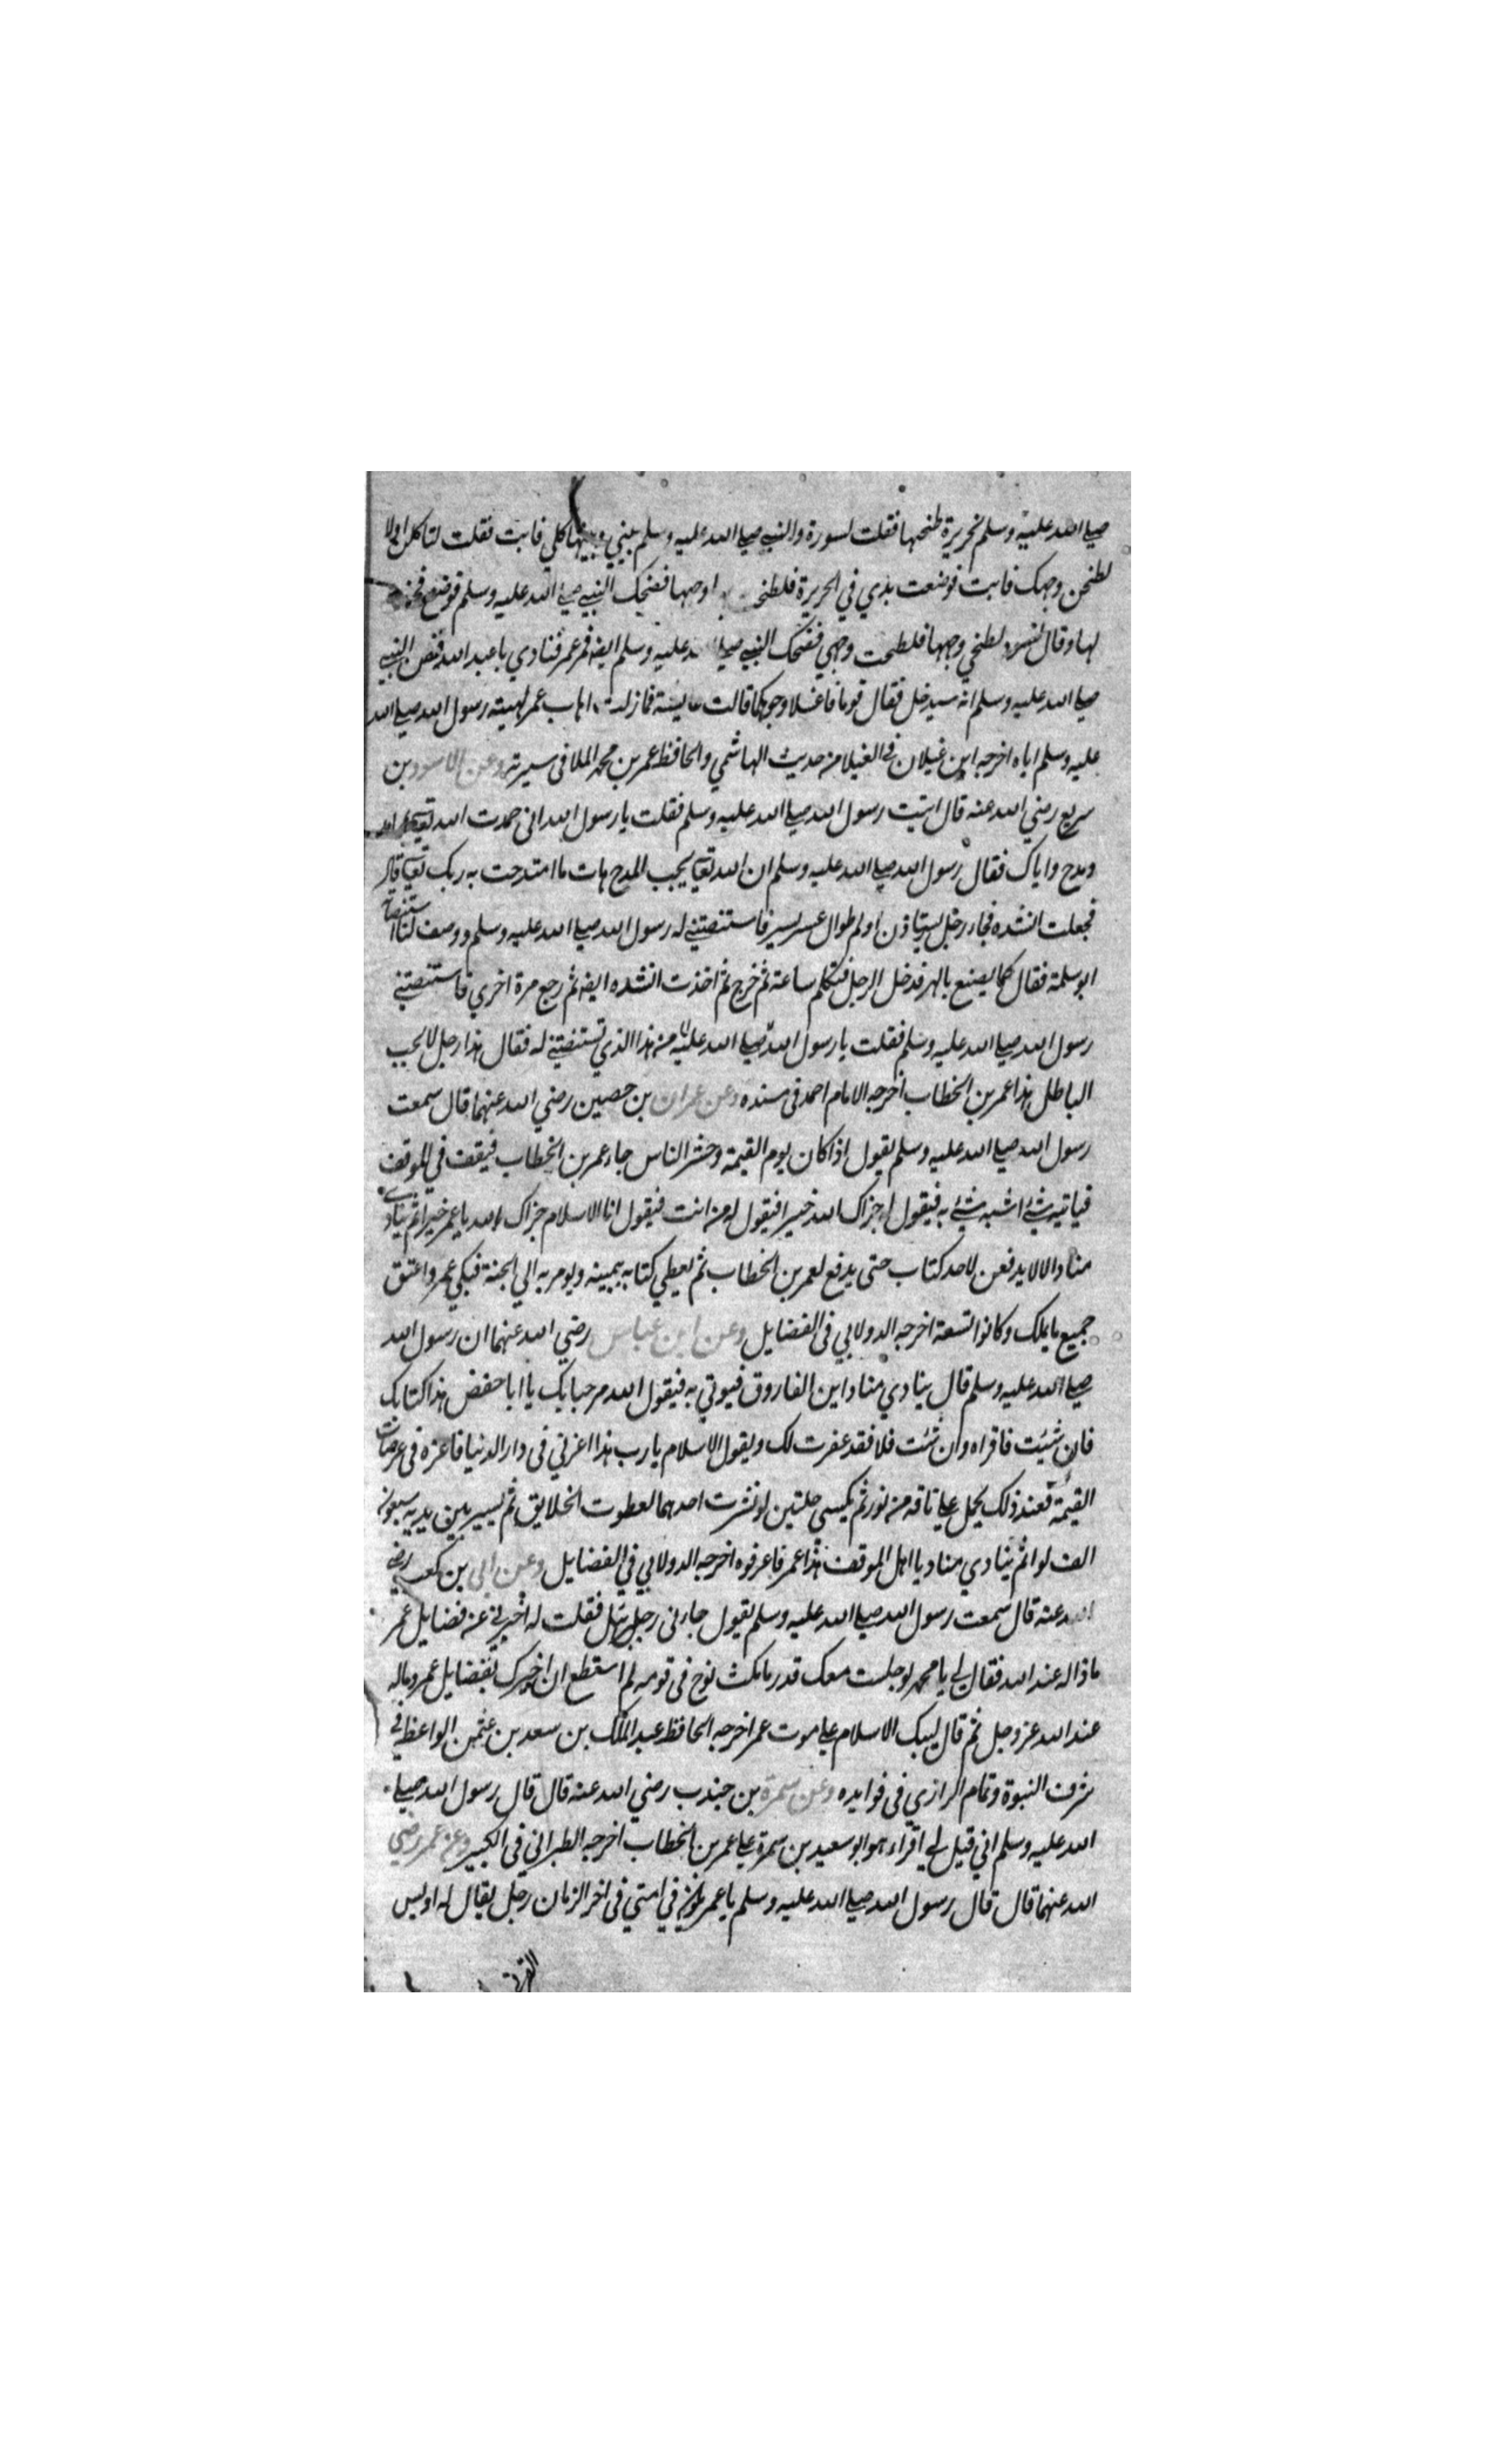 صلى الله عليه وسلم بخريرة طبختها فقلت لسودة والنبي صلى الله عليه وسلم بيني وبينها كلي فابت فقلت لتاكلن اولا
لطخن وجهك فابت فوضعت يدي في الحريرة فلطخت وجهها فضحك النبي صلى الله عليه وسلم فوضع فخذه
لها وقال لسودة لطخي وجهها فلطخت وجهي فضحك النبي صلى الله عليه وسلم ايضا فمر عمر فنادي يا عبد الله فظن النبي
صلى الله عليه وسلم انه سيدخل فقال قوما فاغسلا وجوهكما قالت عايشة فما زلت اهاب عمر لهيبة رسول الله صلى الله
عليه وسلم اياه اخرجه ابن غيلان في الغيلا من حديث الهاشمي والحافظ عمر بن محمد الملا في سيرته وعن الاسود بن
سريع رضي الله عنه قال اتيت رسول الله صلى الله عليه وسلم فقلت يا رسول الله اني حمدت الله تعالى
ومدح واياك فقال رسول الله صلى الله عليه وسلم ان الله تعالى يحب المدح هات ما امتدحت به ربك تعالى قال
فجعلت انشده فجاء رجل يستاذن اولم طوال عسر يسر فاستنصتني له رسول الله صلى الله عليه وسلم ووصف لنا استنصاته
ابو سلمة فقال كما يصنع بالهر فدخل الرجل فتكلم ساعة ثم خرج ثم اخذت انشده ايضا ثم رجع مرة اخري فاستنصتني
رسول الله صلى الله عليه وسلم فقلت يا رسول الله صلى الله عليه من هذا الذي تستنصتني له فقال هذا رجل لا يحب
الباطل هذا عمر بن الخطاب اخرجه الامام احمد في مسنده وعن عمران بن حصين رضي الله عنهما قال سمعت
رسول الله صلى الله عليه وسلم يقول اذا كان يوم القيمة وحشر الناس جاء عمر بن الخطاب فيقف في الموقف
فياتيه شئ اشبه شئ به فيقول له جزاك الله خيرا فيقول له من انت فيقول انا الاسلام جزاك الله يا عمر خيرا ثم ينادي
مناد الا لا يدفعن لاحد كتاب حتى يدفع لعمر بن الخطاب ثم يعطي كتابه بيمينه ويومر به الي الجنة فبكي عمر واعتق
جميع ما يملك وكانوا تسعة اخرجه الدولابي في الفضايل وعن ابن عباس رضي الله عنهما ان رسول الله
صلى الله عليه وسلم قال ينادي مناد اين الفاروق فيوتي به فيقول الله مرحبا بك يا ابا حفض هذا كتابك
فان شئت فاقراه وان شئت فلا فقد غفرت لك ويقول الاسلام يا رب هذا اعزني في دار الدنيا فاعزه في عرصات
القيمة فعند ذلك يحمل على ناقة من نور ثم يكسي حلتين لو نشرت احدهما لعطوت الخلايق ثم يسير بين يديه سبعون
الف لوا ثم ينادي مناد يا اهل الموقف هذا عمر فاعرفوه اخرجه الدولابي في الفضايل وعن ابي بن كعب رضي
الله عنه قال سمعت رسول الله صلى الله عليه وسلم يقول جاءني فقلت له اخبرني عن فضايل عمر
ماذا له عند الله فقال لي يا محمد لو جلست معك قدر ما مكث نوح في قومه لم استطع ان اخبرك بفضايل عمر وماله
عند الله عز وجل ثم قال ليبك الاسلام على موت عمر اخرجه الحافظ عبد الملك بن سعد بن عثمن الواعظ في
شرف النبوة وتمام الرازي في فوايده وعن سمرة بن جندب رضي الله عنه قال قال رسول الله صلى
الله عليه وسلم اني قيل لي اقراء هو ابو سعيد بن سمرة على عمر بن الخطاب اخرجه الطبراني في الكبير وعن عمر رضي
الله عنهما قال قال رسول الله صلى الله عليه وسلم يا عمر يكون في امتي في اخر الزمان رجل يقال له اويس
القرني